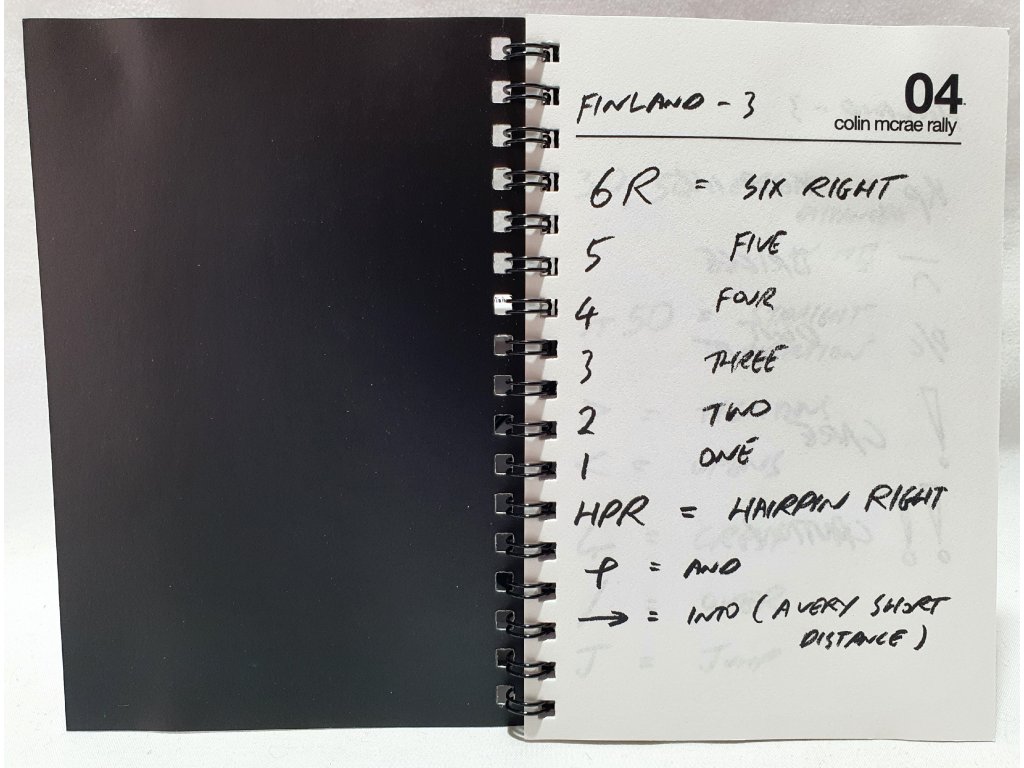 04
colin mcrae rally
FINLAND - 3
6R = SIX RIGHT
5 FIVE
4 FOUR
3 THREE
2 TWO
1 ONE
HPR = HAIRPIN RIGHT
+ = AND
→ = INTO (A VERY SHORT
DISTANCE)